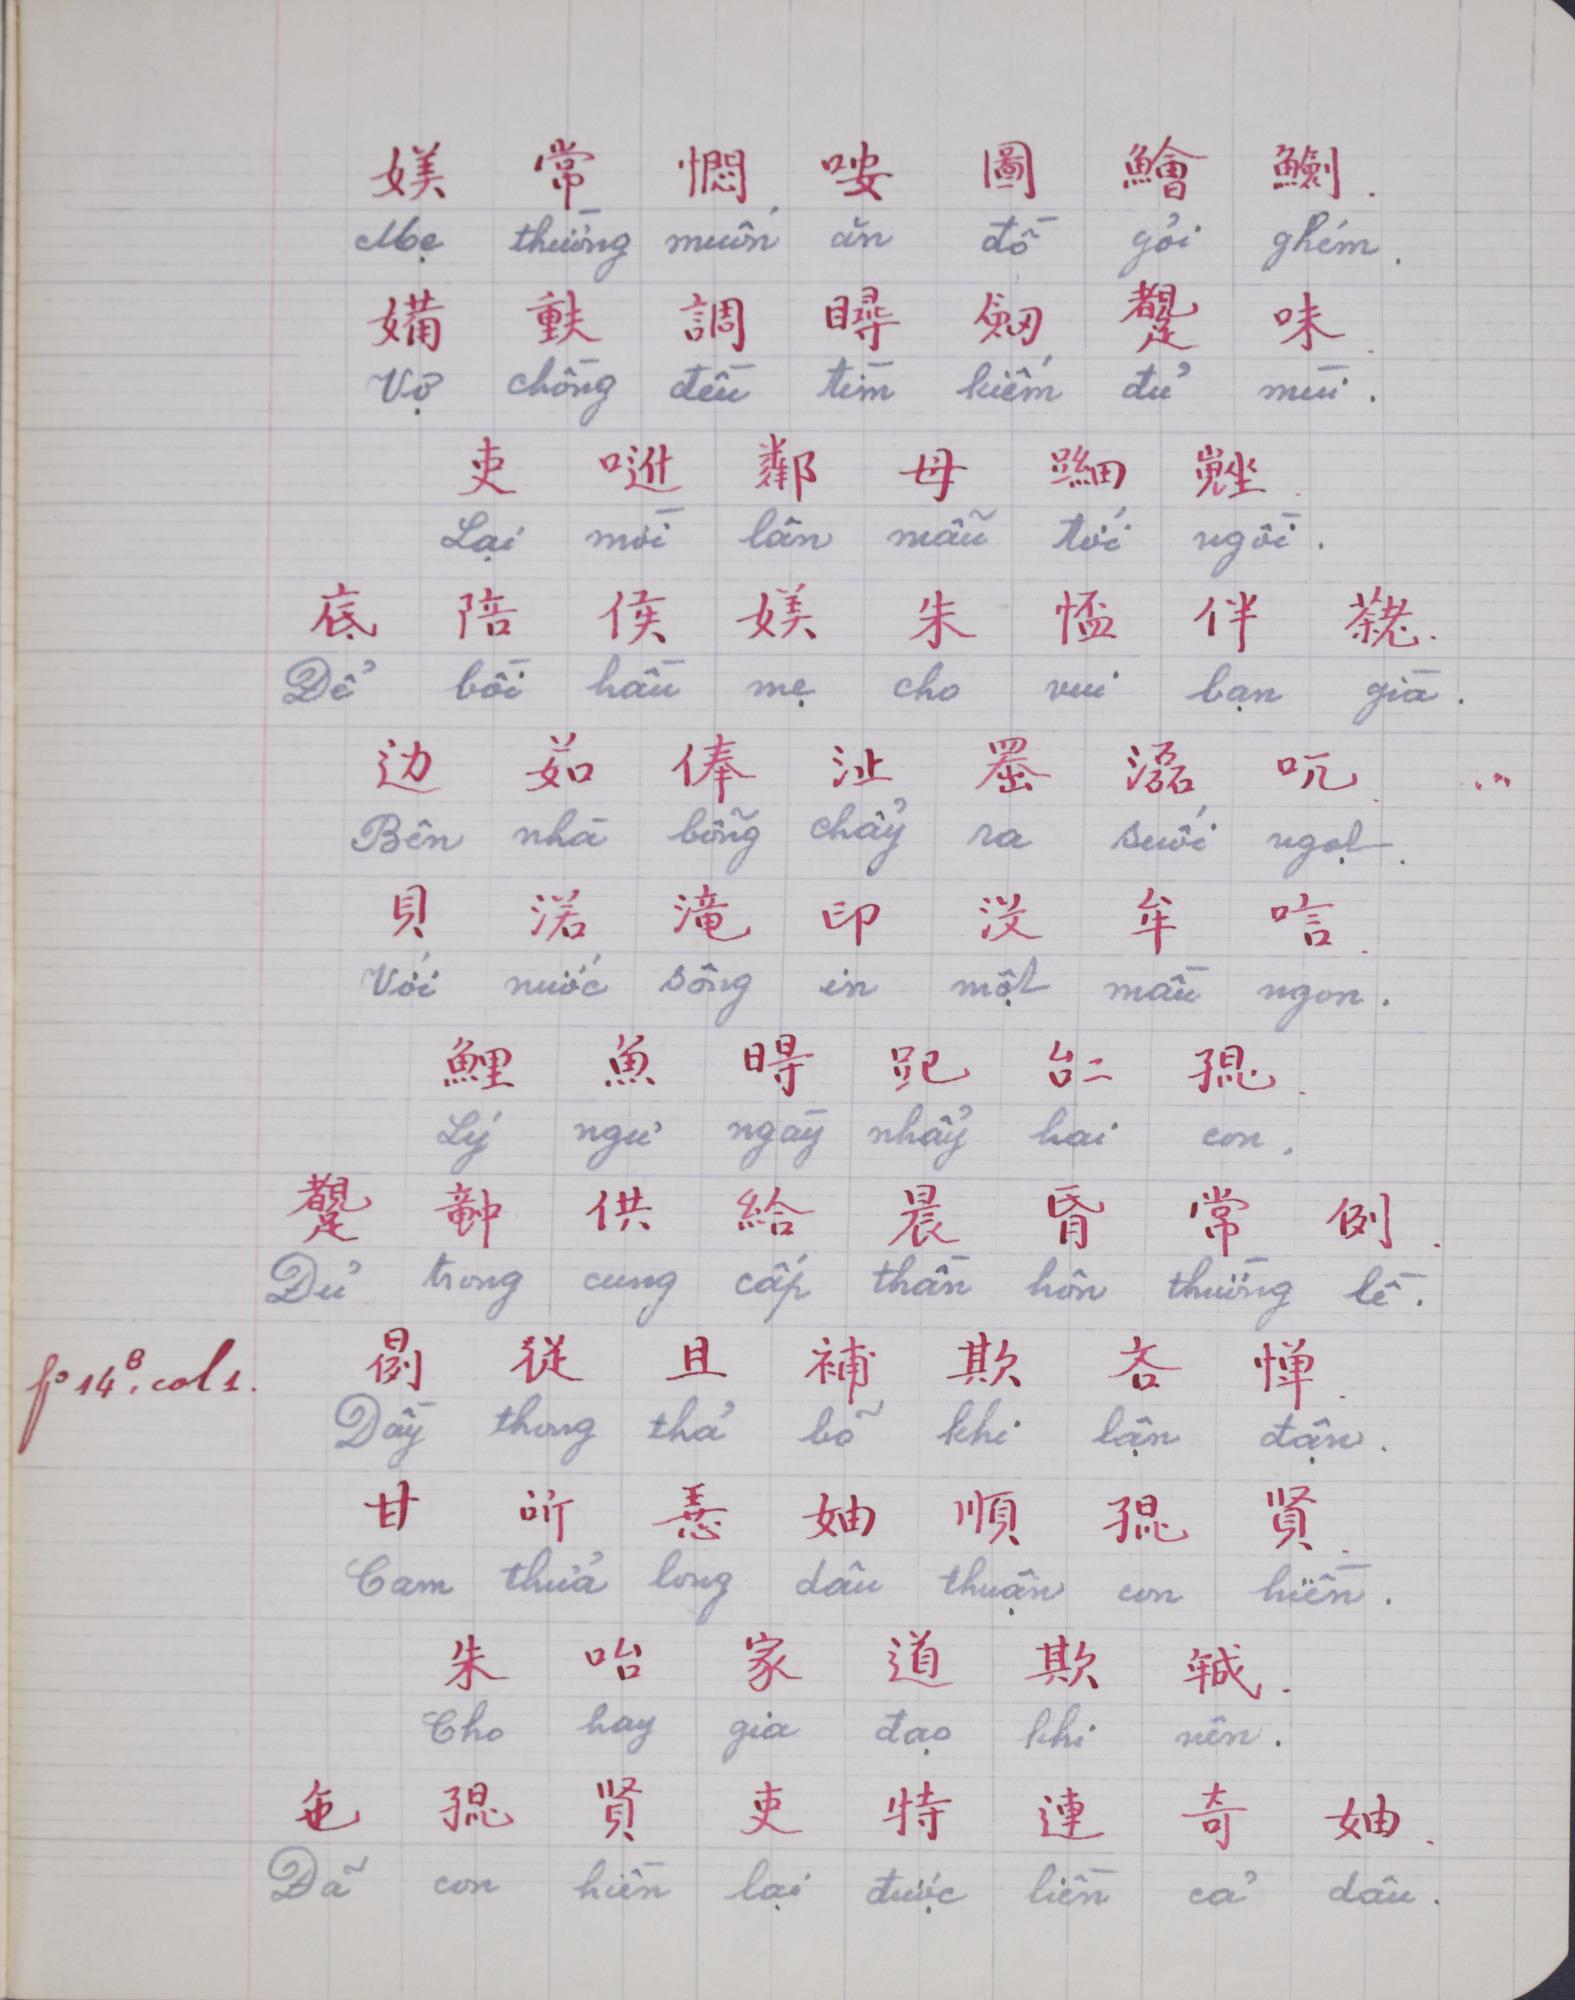 媄 常 𢠣 咹 圖 鱠 𩼁.
Mẹ thường muốn ăn đồ gỏi ghém.
𡞕 𫯳 調 尋 劒 𨇜 味.
Vợ chồng đều tìm kiếm đủ mùi.
吏 𠶆 鄰 母 細 𡎥.
Lại mời lân mẫu tới ngồi.
底 陪 侯 媄 朱 𢝙 伴 𦓅.
Để bồi hầu mẹ cho vui bạn già.
边 茹 俸 沚 𦋦 㵢 吭. ...
Bên nhà bỗng chảy ra suối ngọt.
貝 渃 滝 印 没 牟 唁.
Với nước sông in một mầu ngon.
鯉 魚 𣈜 𨀊 𠄩 𡥵.
Lý ngư ngày nhảy hai con.
𨇜 𥪝 供 給 晨 昏 常 例.
Đủ trong cung cấp thần hôn thường lề.
p 14ᴮ. col 1.
𣌒 從 且 補 欺 吝 惮.
Dầy thong thả bõ khi lận đận.
甘 所 𢚸 妯 順 𡥵 賢.
Cam thửa long dâu thuận con hiền.
朱 咍 家 道 欺 𢧚.
Cho hay gia đạo khi nên.
㐌 𡥵 賢 吏 特 連 奇 妯.
Đã con hiền lại được liền cả dâu.